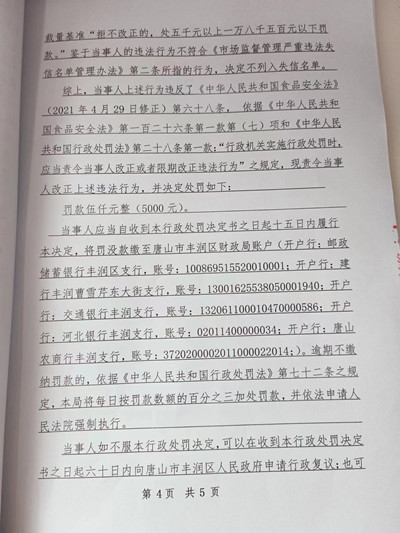 裁量基准“拒不改正的，处五千元以上一万八千五百元以下罚
款。”鉴于当事人的违法行为不符合《市场监督管理严重违法失
信名单管理办法》第二条所指的行为，决定不列入失信名单。
综上，当事人上述行为违反了《中华人民共和国食品安全法》
（2021 年 4 月 29 日修正）第六十八条， 依据《中华人民共和
国食品安全法》第一百二十六条第一款第（七）项和《中华人民
共和国行政处罚法》第二十八条第一款：“行政机关实施行政处罚时，
应当责令当事人改正或者限期改正违法行为”之规定，现责令当事
人改正上述违法行为，并决定处罚如下：
罚款伍仟元整（5000 元）。
当事人应当自收到本行政处罚决定书之日起十五日内履行
本决定，将罚没款缴至唐山市丰润区财政局账户（开户行：邮政
储蓄银行丰润区支行，账号：100869515520010001；开户行：建
行丰润曹雪芹东大街支行，账号：13001625538050001940；开户
行：交通银行丰润支行，账号：132061110010470000586；开户
行：河北银行丰润支行，账号：02011400000034；开户行：唐山
农商行丰润支行，账号：3720200002011000022014；）。逾期不缴
纳罚款的，依据《中华人民共和国行政处罚法》第七十二条之规
定，本局将每日按罚款数额的百分之三加处罚款，并依法申请人
民法院强制执行。
当事人如不服本行政处罚决定，可以在收到本行政处罚决定
书之日起六十日内向唐山市丰润区人民政府申请行政复议；也可
第 4 页 共 5 页